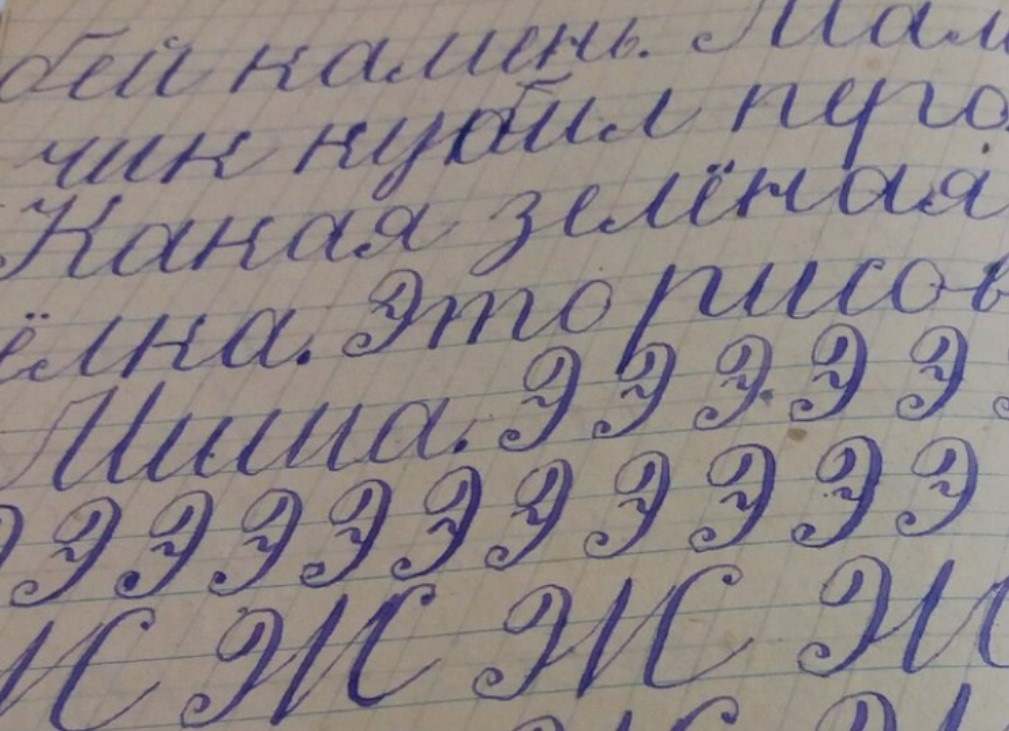 бей камень. Мал
чик кубил пуго
Какая зелёная
ёлка. Это рисов
Миша. Э Э Э Э Э
Э Э Э Э Э Э Э Э Э Э
Ж Ж Ж Ж